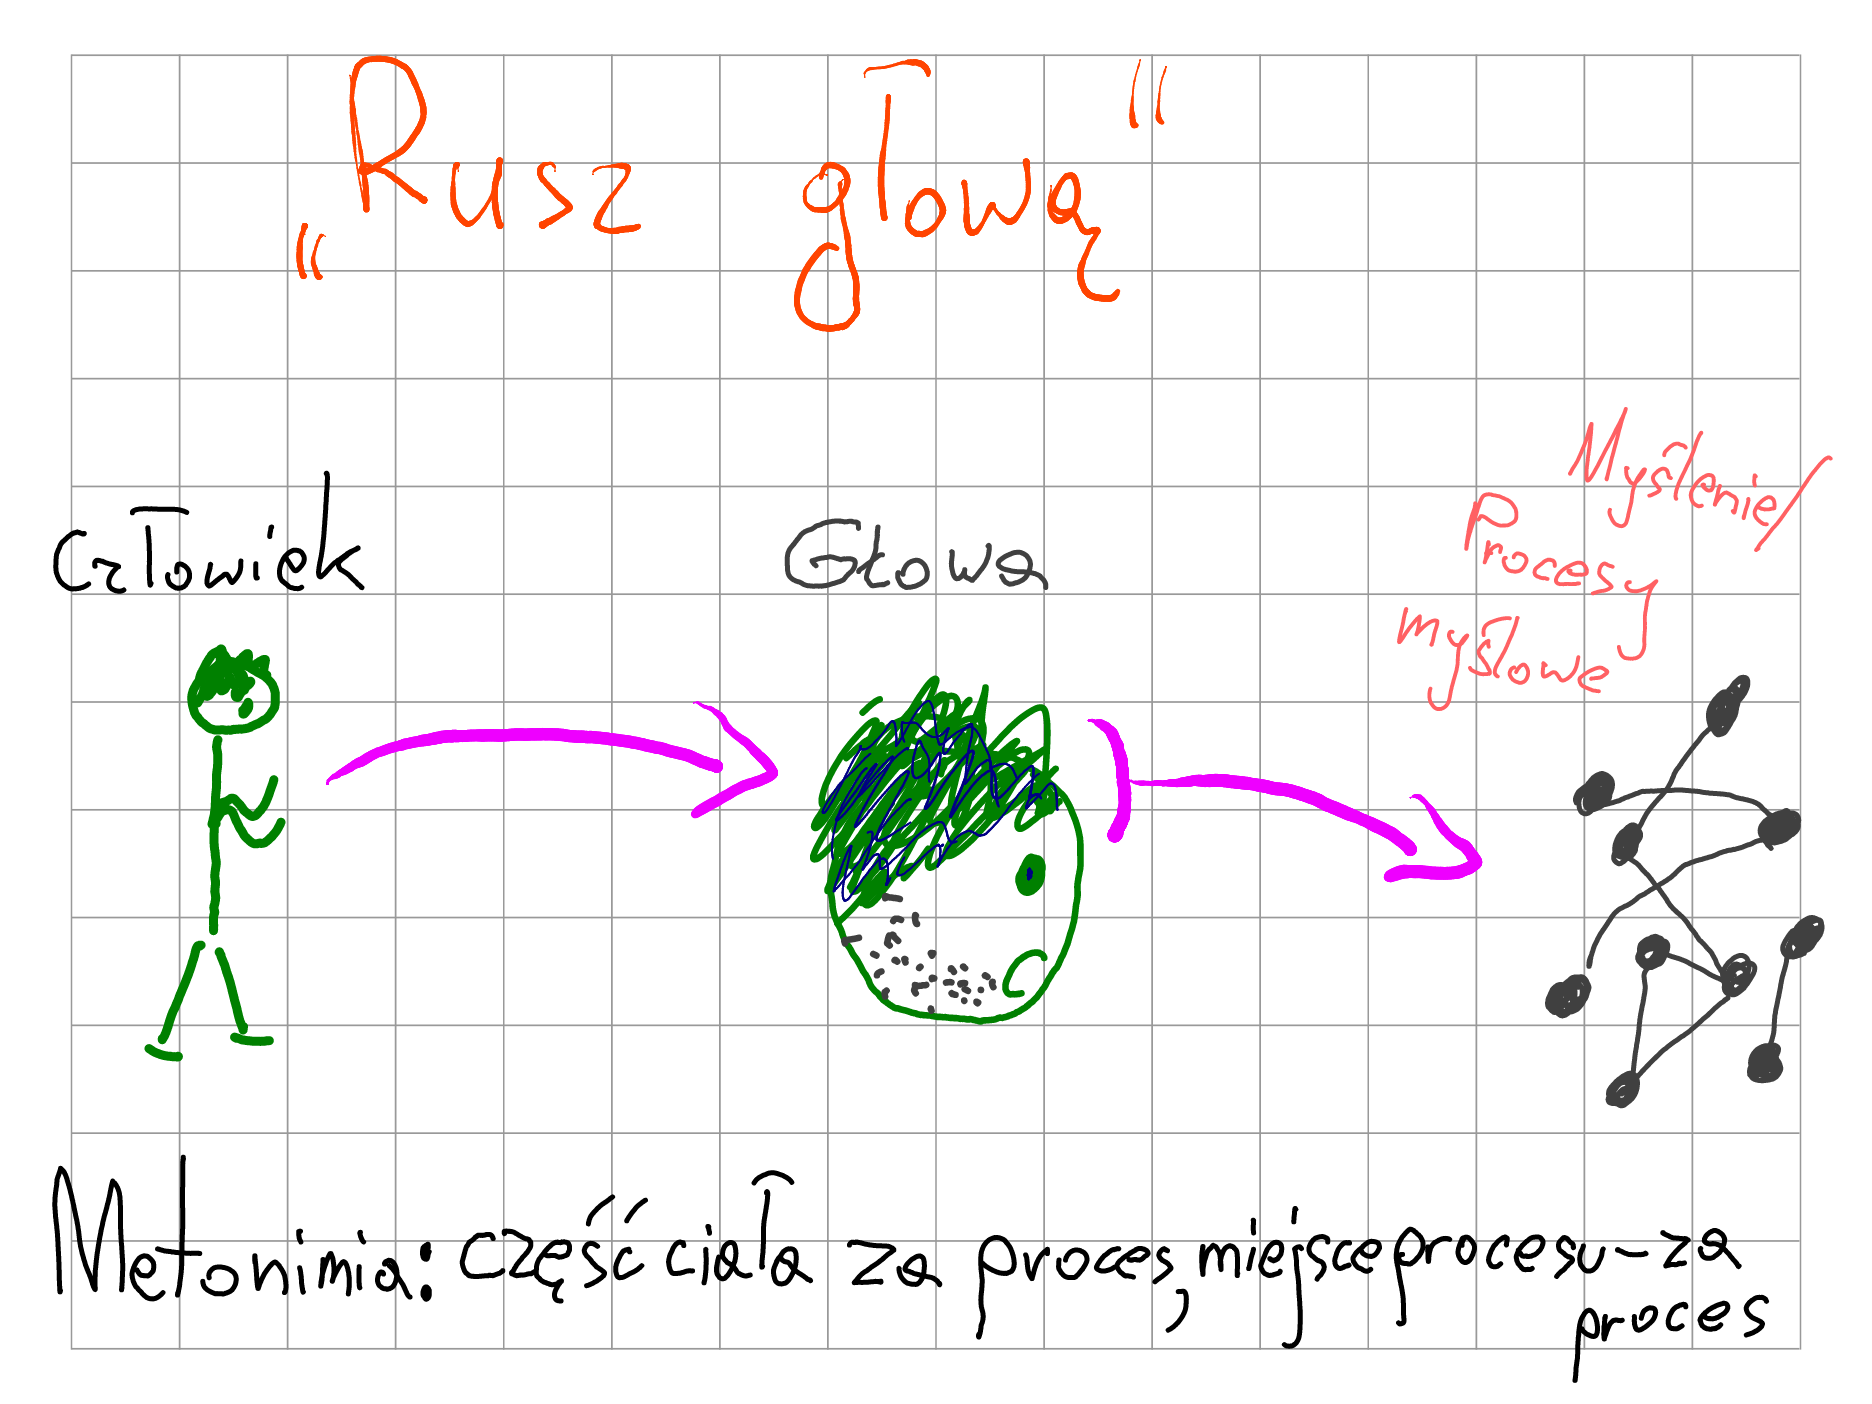 „Rusz głową"
Człowiek
Głowa
Myślenie/
Procesy
myślowe
Metonimia: część ciała za proces, miejsce procesu - za
proces